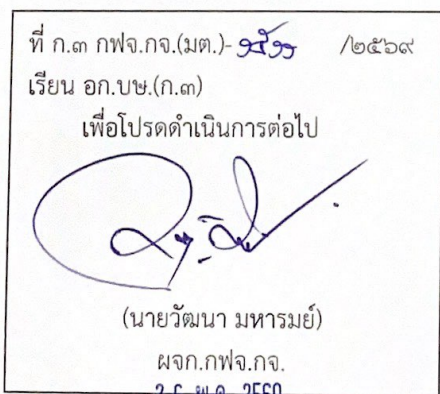 ที่ ก.๓ กฟจ.กจ.(มต.)- /๒๕๖๙
เรียน อก.บษ.(ก.๓)
เพื่อโปรดดำเนินการต่อไป
(นายวัฒนา มหารมย์)
ผจก.กฟจ.กจ.